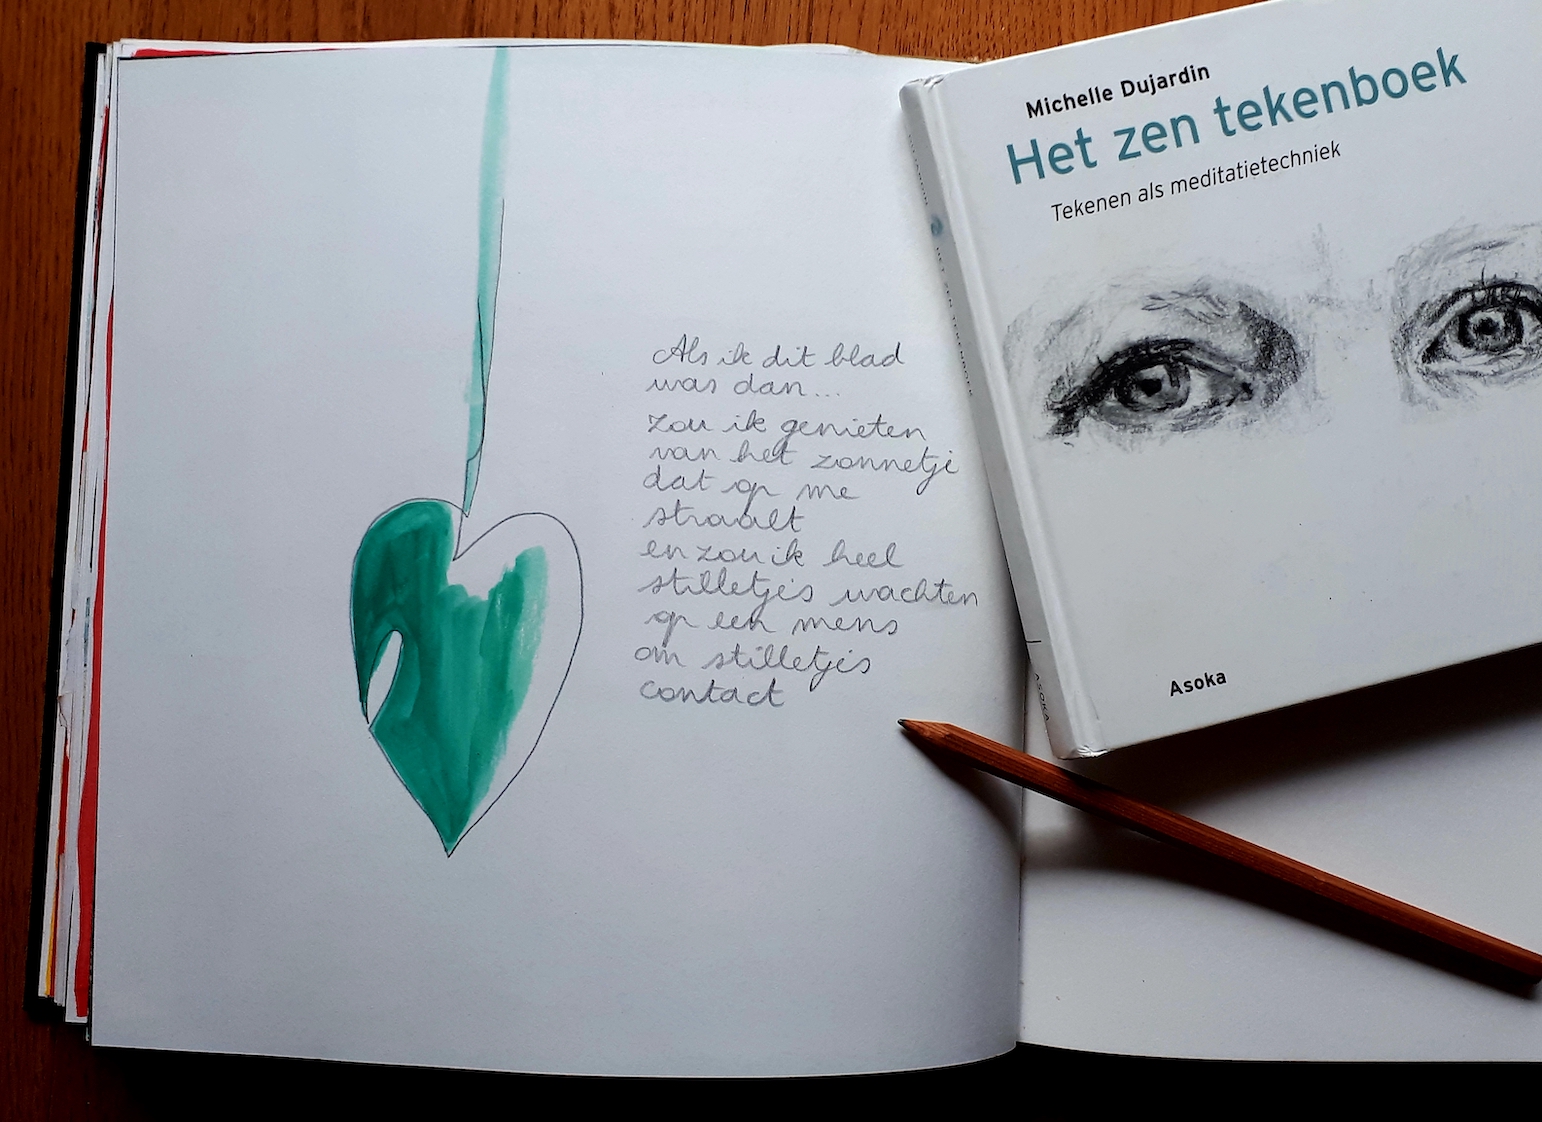 Als ik dit blad
was dan...
Zou ik genieten
van het zonnetje
dat op me
straalt
en zou ik heel
stilletjes wachten
op een mens
om stilletjes
contact
Michelle Dujardin
Het zen tekenboek
Tekenen als meditatietechniek
Asoka
DUJARDIN HET ZEN TEKENBOEK ASOKA